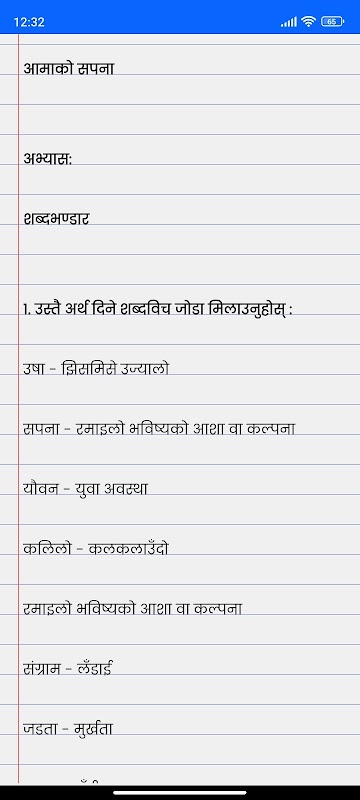 12:32
65
आमाको सपना
अभ्यास:
शब्दभण्डार
१. उस्तै अर्थ दिने शब्दविच जोडा मिलाउनुहोस् :
उषा - झिसमिसे उज्यालो
सपना - रमाइलो भविष्यको आशा वा कल्पना
यौवन - युवा अवस्था
कलिलो - कलकलाउँदो
रमाइलो भविष्यको आशा वा कल्पना
संग्राम - लँडाई
जडता - मुर्खता